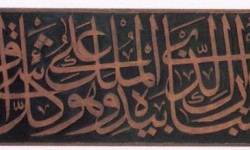 تبارك الذي بيده الملك وهو على كل شيء